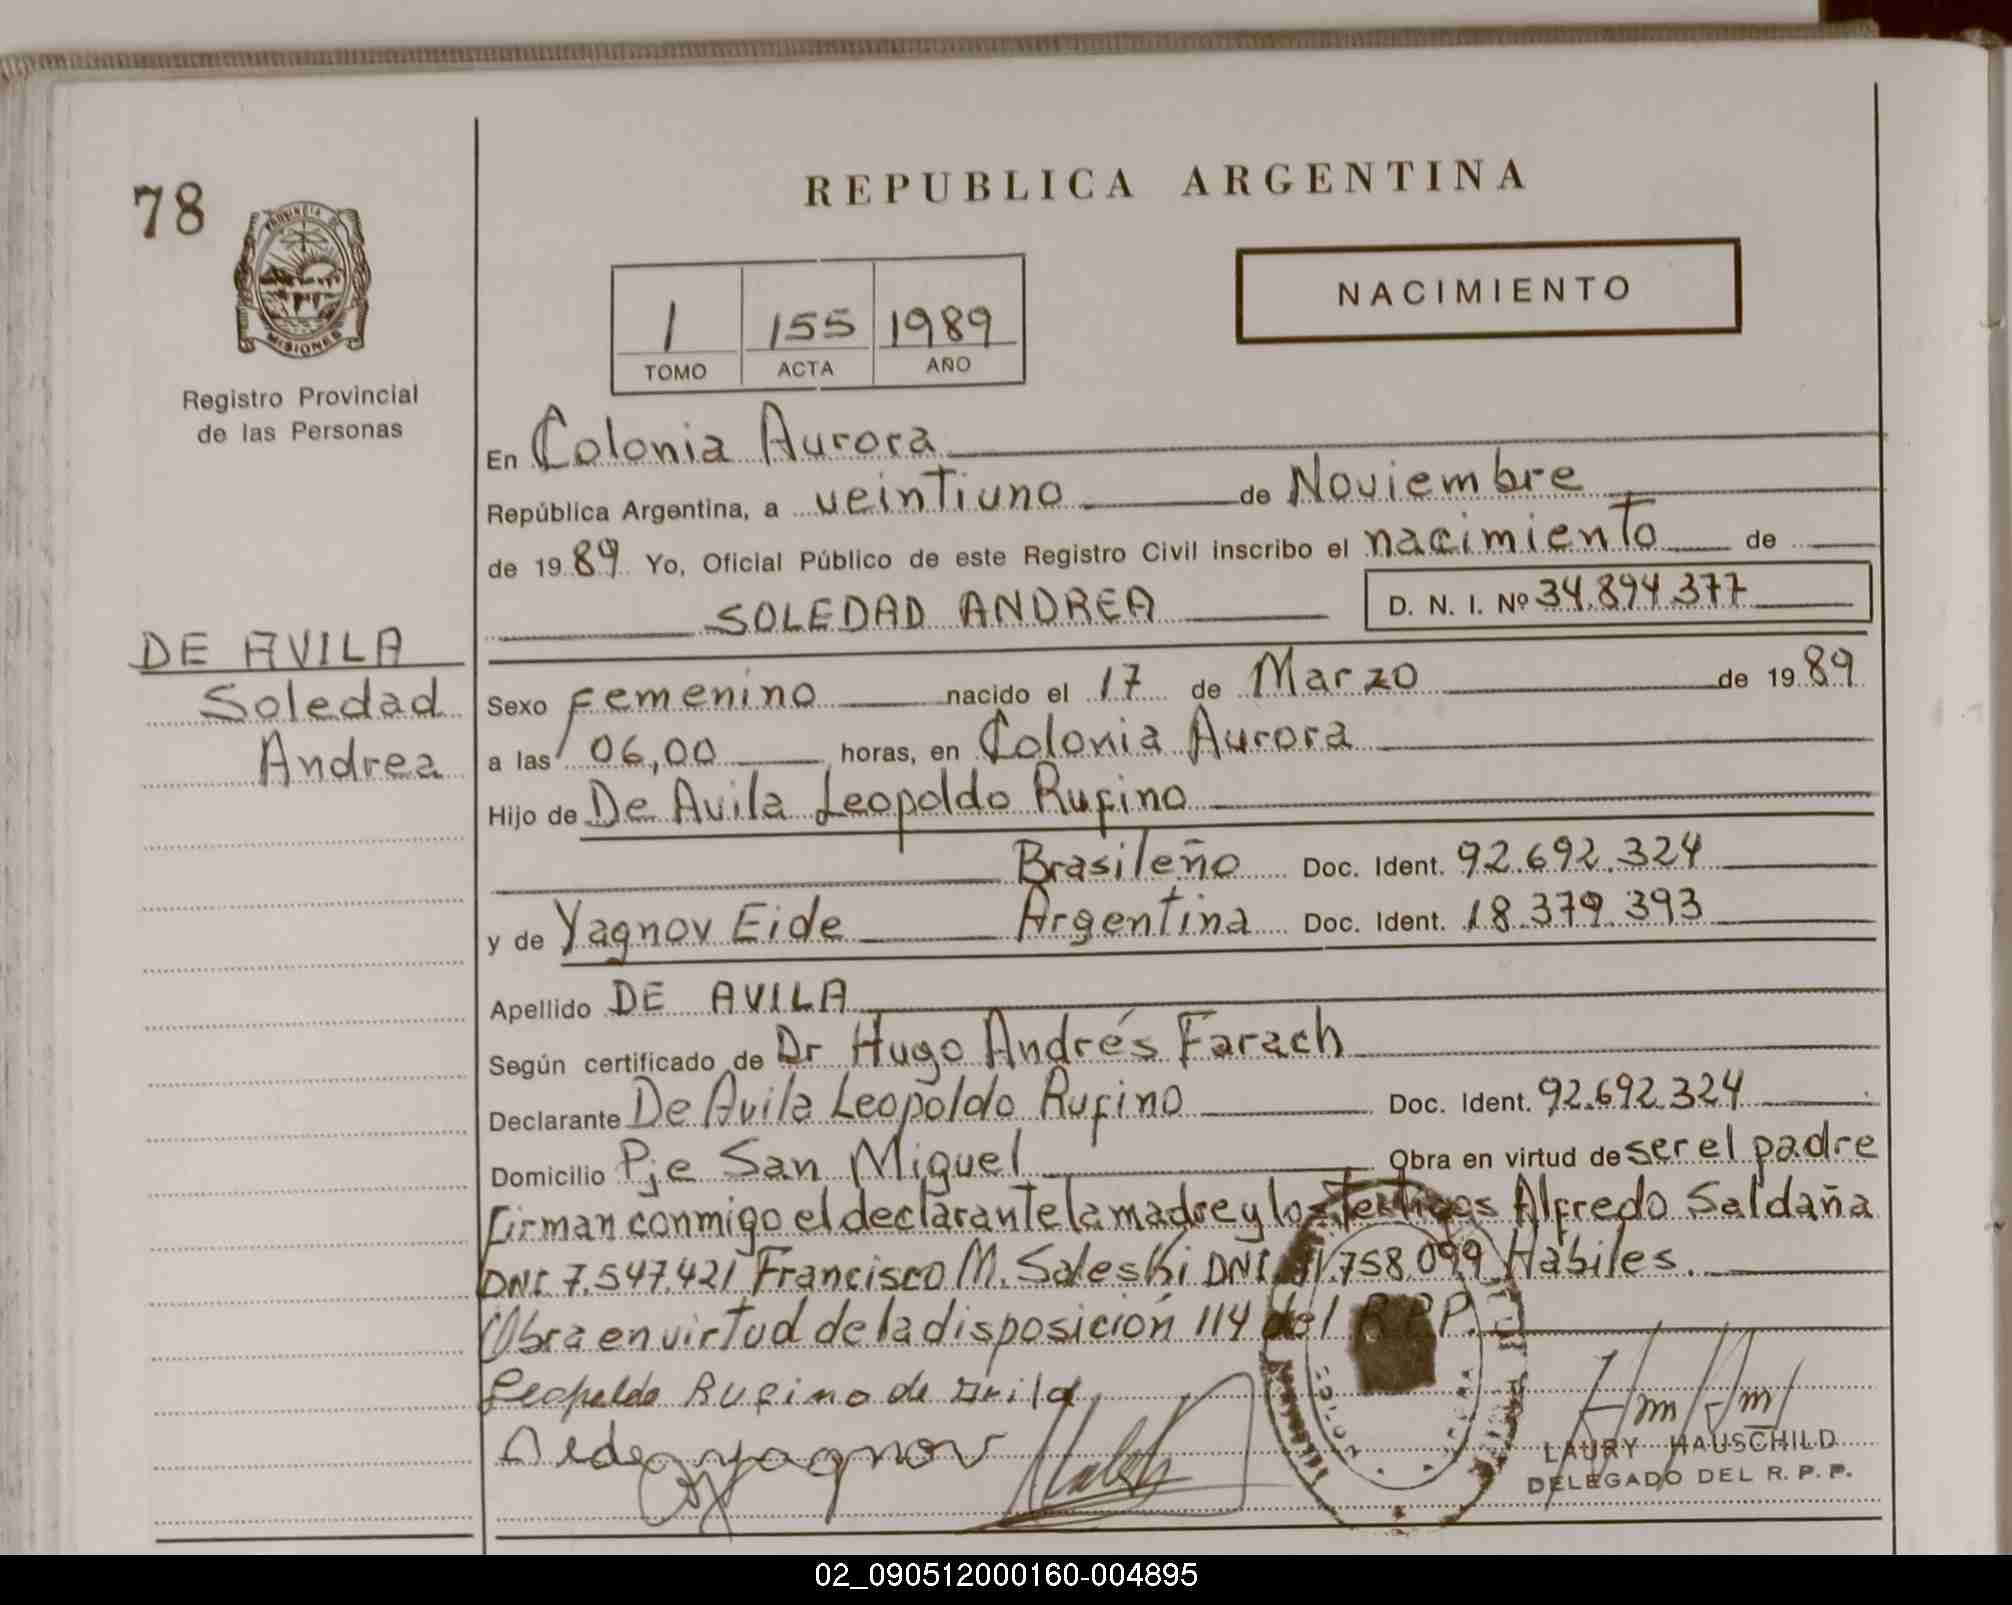 78
PROVINCIA DE
MISIONES
Registro Provincial
de las Personas
DE AVILA
Soledad
Andrea
REPUBLICA ARGENTINA
1 155 1989
TOMO ACTA AÑO
NACIMIENTO
En Colonia Aurora
República Argentina, a veintiuno de Noviembre
de 1989 Yo, Oficial Público de este Registro Civil inscribo el nacimiento de
SOLEDAD ANDREA D. N. I. Nº 34.894.377
Sexo Femenino nacido el 17 de Marzo de 1989
a las 06,00 horas, en Colonia Aurora
Hijo de De Avila Leopoldo Rufino
Brasileño Doc. Ident. 92.692.324
y de Yagnov Eide Argentina Doc. Ident. 18.379.393
Apellido DE AVILA
Según certificado de Dr Hugo Andrés Farach
Declarante De Avila Leopoldo Rufino Doc. Ident. 92.692.324
Domicilio Pje San Miguel Obra en virtud de ser el padre
Firman conmigo el declarante la madre y los testigos Alfredo Saldaña
DNI 7.547.421 Francisco M. Saleski DNI 11.758.099 Hábiles.
Obra en virtud de la disposición 114 del R.P.P.
Leopoldo Rufino de Avila
yagnov
LAURY HAUSCHILD
DELEGADO DEL R. P. P.
02_090512000160-004895